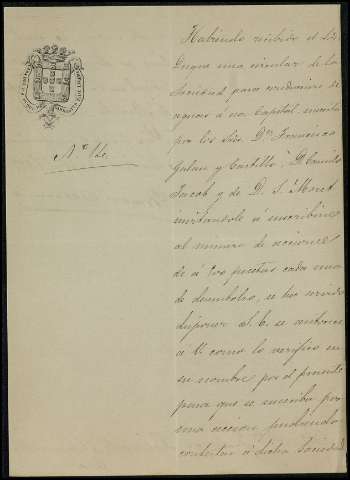 Habiendo recibido el Sr.
Duque una circular de la
Sociedad para
aguas á esa Capital,
por los Sres. Dn. Francisco
y Castillo, D. Camilo
Jacob y de D. S. Moret
invitandole á inscribirse
al número de acciones
de á 500 pesetas cada una
de desembolso, se ha servido
disponer S. E. se autorice
á V. como lo verifico en
su nombre por el presente
para que se suscriba por
una accion pudiendo
contestar á dicha Sociedad